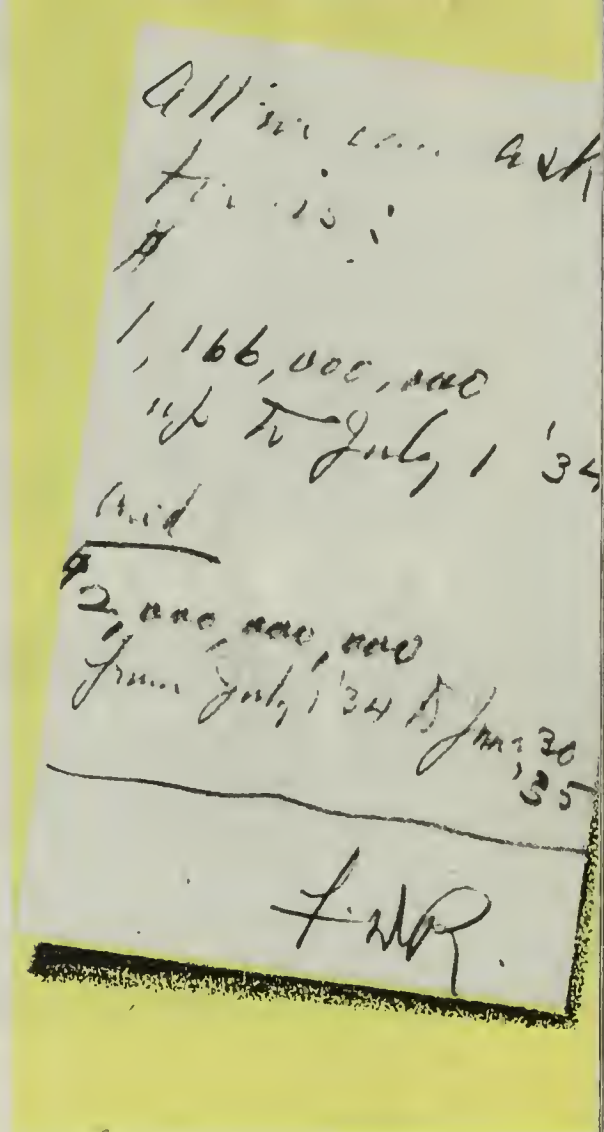 All we can ask
for is:
$
1,166,000,000
up to July 1 '34
and
$
2,000,000,000
from July 1 '34 to June 30
'35
F.D.R.